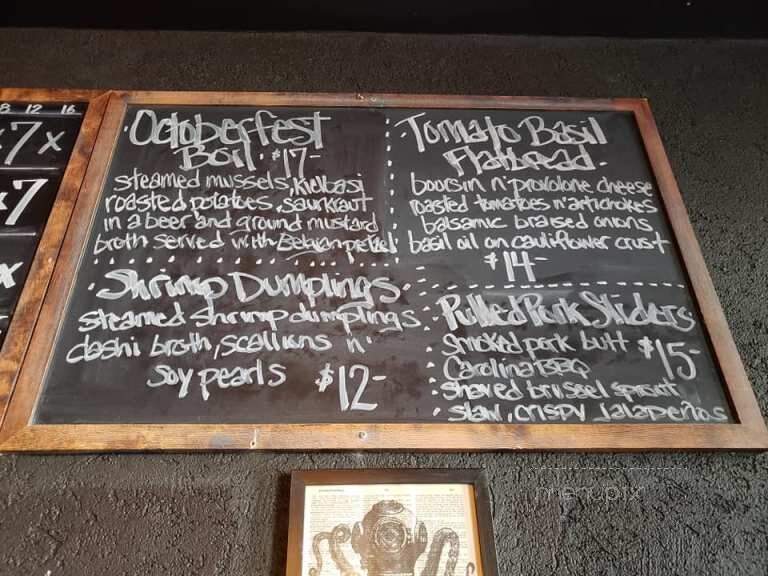 8 12 16
7x
7
x
Octoberfest
Boil $17-
steamed mussels, kielbasi
roasted potatoes, saurkraut
in a beer and ground mustard
broth served with Belgian pretzel
Shrimp Dumplings
steamed shrimp dumplings
dashi broth, scallions n'
soy pearls $12-
Tomato Basil
Flatbread
boorsin n' provolone cheese
roasted tomatoes n' artichokes
balsamic braised onions
basil oil on cauliflower crust
$14-
Pulled Pork Sliders
smoked pork butt $15-
Carolina BBQ
shaved brussel sprout
slaw, crispy jalapeños
menupix